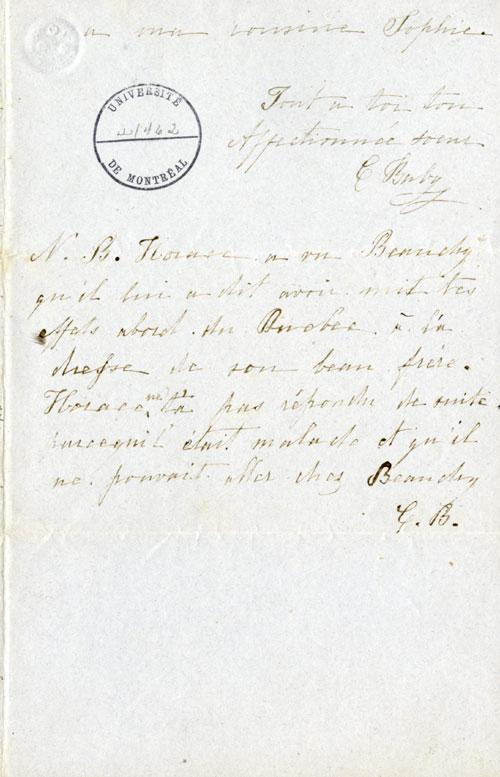 a ma cousine Sophie.
UNIVERSITÉ
DE MONTRÉAL
Tout a toi ton
Affectionnée soeur
C Baby
N. B. Horace a vu Beaudry
qu'il lui a dit avoir mit tes
effets abord du Quebec à l'a
dresse de son beau frère.
Horace ne t'a pas répondu de suite
parcequ'il était malade et qu'il
ne pouvait aller chez Beaudry
C. B.